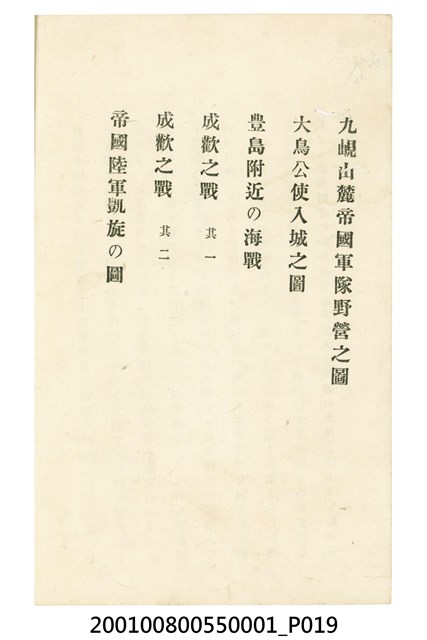 九峴山麓帝國軍隊野營之圖
大鳥公使入城之圖
豊島附近の海戰
成歡之戰 其一
成歡之戰 其二
帝國陸軍凱旋の圖
200100800550001_P019